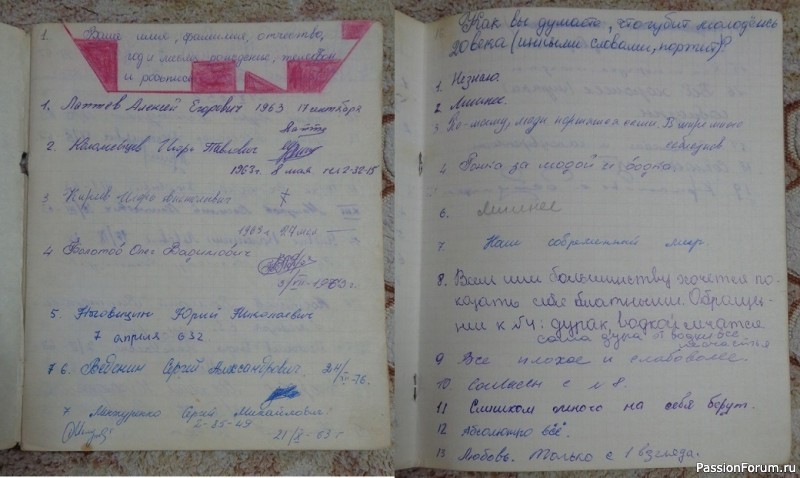 1. Ваше имя, фамилия, отчество,
год и месяц рождение, телефон
и роспись.
1. Лаптев Алексей Егорович 1963 17 сентября
2. Коломейцев Игорь Павлович
1962г. 8 мая тел 2-32-15
3 Киреев
1963г. 27 мая
4 Болотов Олег Вадимович
5 Юрий Николаевич
7 апреля 632
7 6. Веденин Сергей Александрович. 24/
-76.
7 Сергей Михайлович.
2-35-49
21/X-63 г
Как вы думаете, что губит молодёжь
20 века (иными словами, портит)?
1. Незнаю.
2. Лишнее.
3 По-моему, люди портятся сами. В
4 Гонка за модой и водка
6. Лишнее
7 Наш современный мир.
8. Всем или большинству хочется по-
казать себя блатными. Обраще-
ние к №4: дурак, водкой лечатся
сама дура от водки все
9 Все плохое и
10 Согласен с №8.
11 Слишком много на себя берут.
12 Абсолютно всё.
13 Любовь. Только с 1 взгляда.
PassionForum.ru